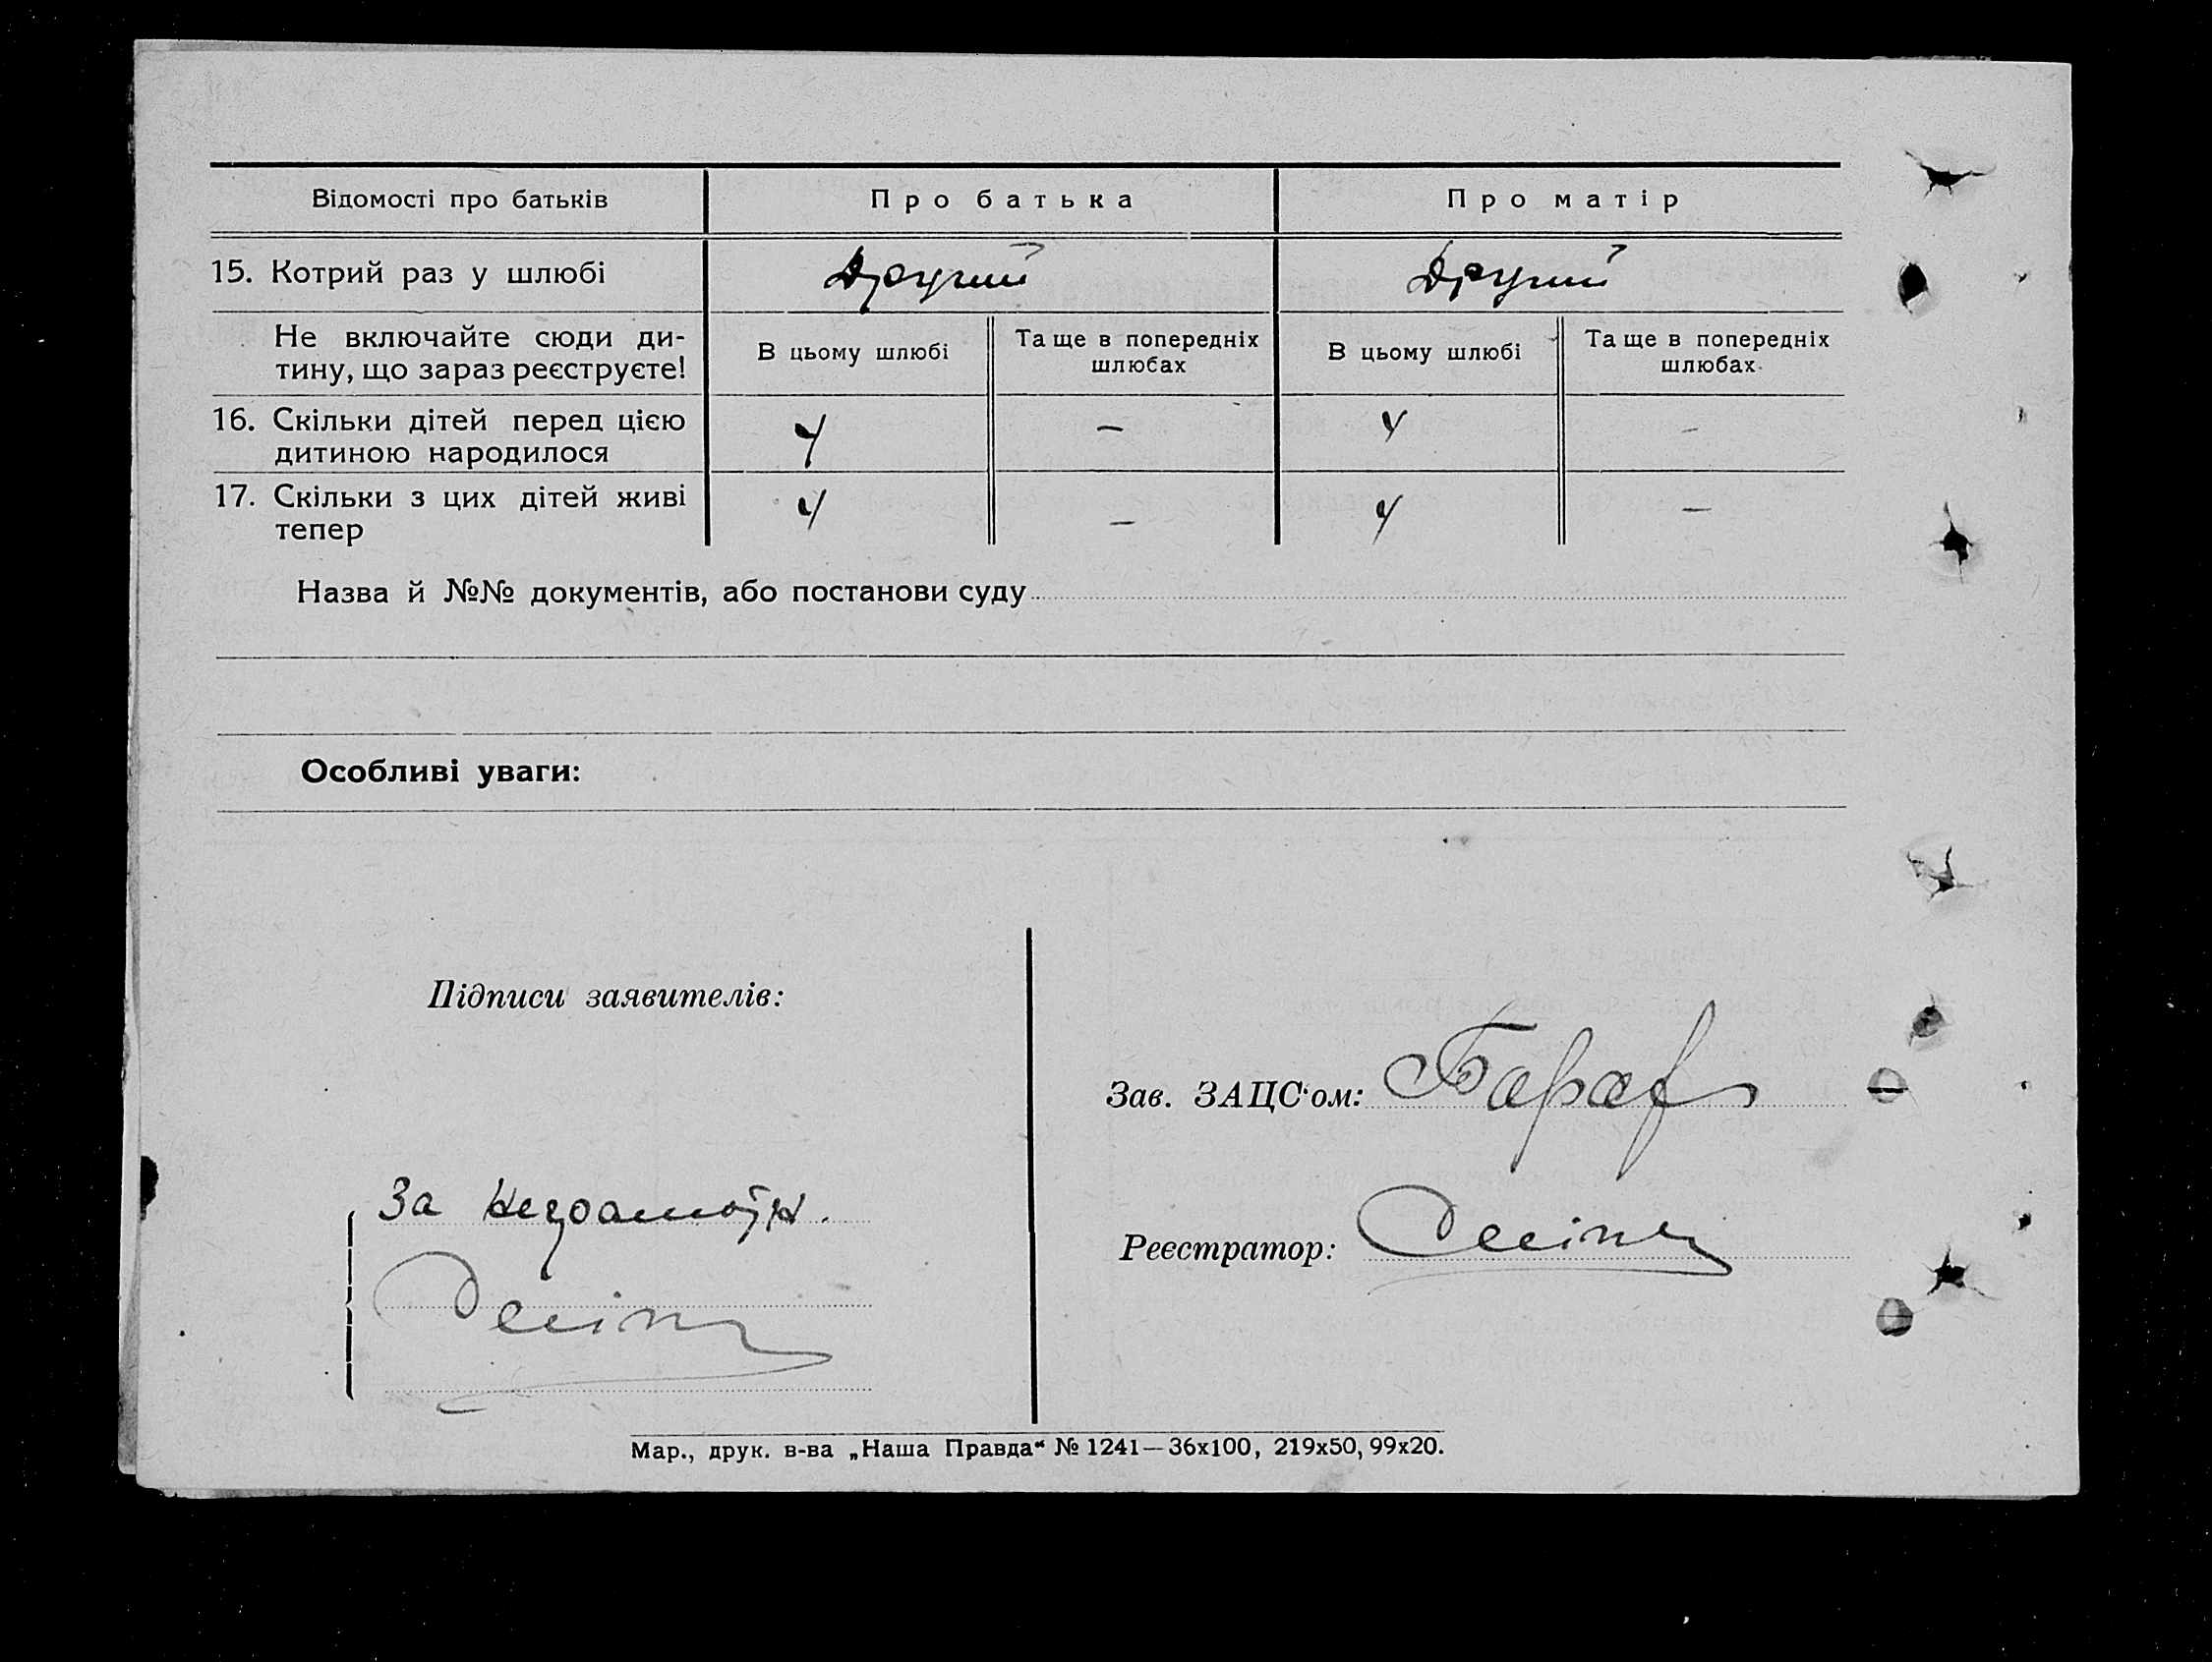 Відомості про батьків Про батька Про матір
15. Котрий раз у шлюбі Другий Другий
Не включайте сюди ди-
тину, що зараз реєструєте!
В цьому шлюбі
Та ще в попередніх
шлюбах
В цьому шлюбі
Та ще в попередніх
шлюбах
16. Скільки дітей перед цією
дитиною народилося
4 — 4 –
17. Скільки з цих дітей живі
тепер
4 — 4 —
Назва й №№ документів, або постанови суду
Особливі уваги:
Підписи заявителів:
За неграмотн.
Зав. ЗАЦС'ом:
Реєстратор:
Мар., друк. в-ва „Наша Правда“ № 1241—36х100, 219х50, 99х20.